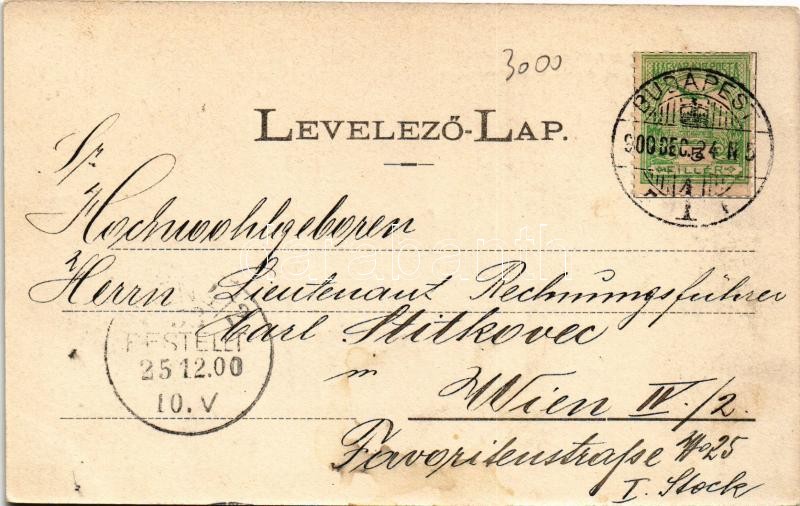 3000
MAGYAR KIR. POSTA
BUDAPEST
900 DEC. 24 N 5
5
FILLÉR
LEVELEZŐ-LAP.
Sr.
Hochwohlgeboren
Herrn Lieutenant Rechnungsführer
Carl Stitkovec
in
Wien IV./2.
Favoritenstraße No 25
I. Stock
BESTELLT
25 12.00
10. V
darabanth